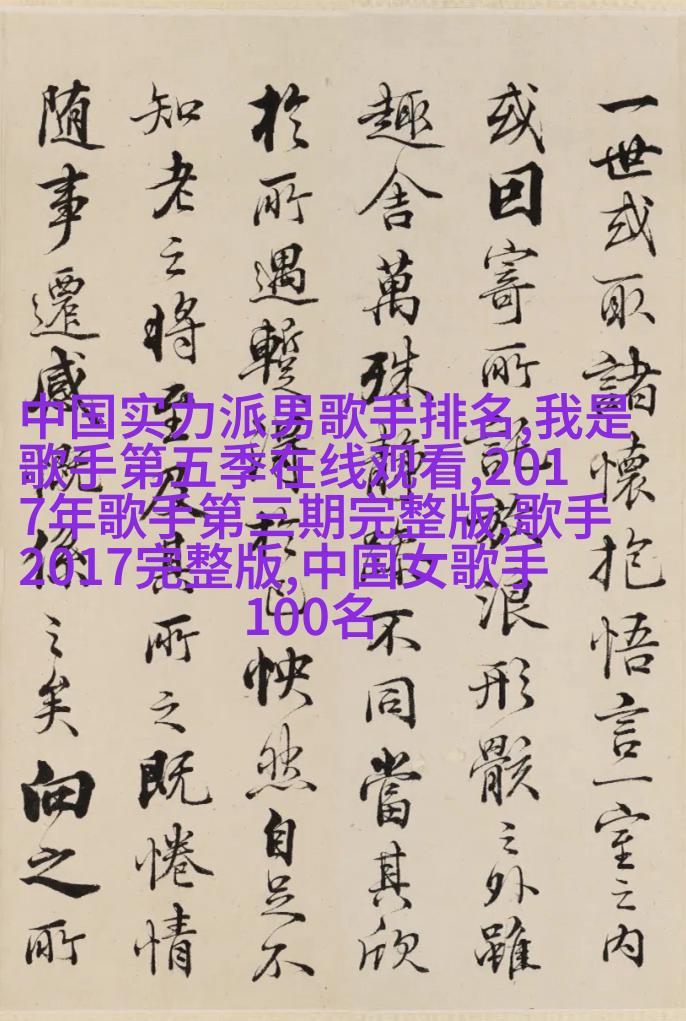 一世或取諸懷抱悟言一室之内
或因寄所託放浪形骸之外雖
趣舍萬殊靜躁不同當其欣
於所遇暫得於己怏然自足不
知老之將至及其所之既惓情
随事遷感慨係之矣向之所
中国实力派男歌手排名,我是
歌手第五季在线观看,201
7年歌手第三期完整版,歌手
2017完整版,中国女歌手
100名